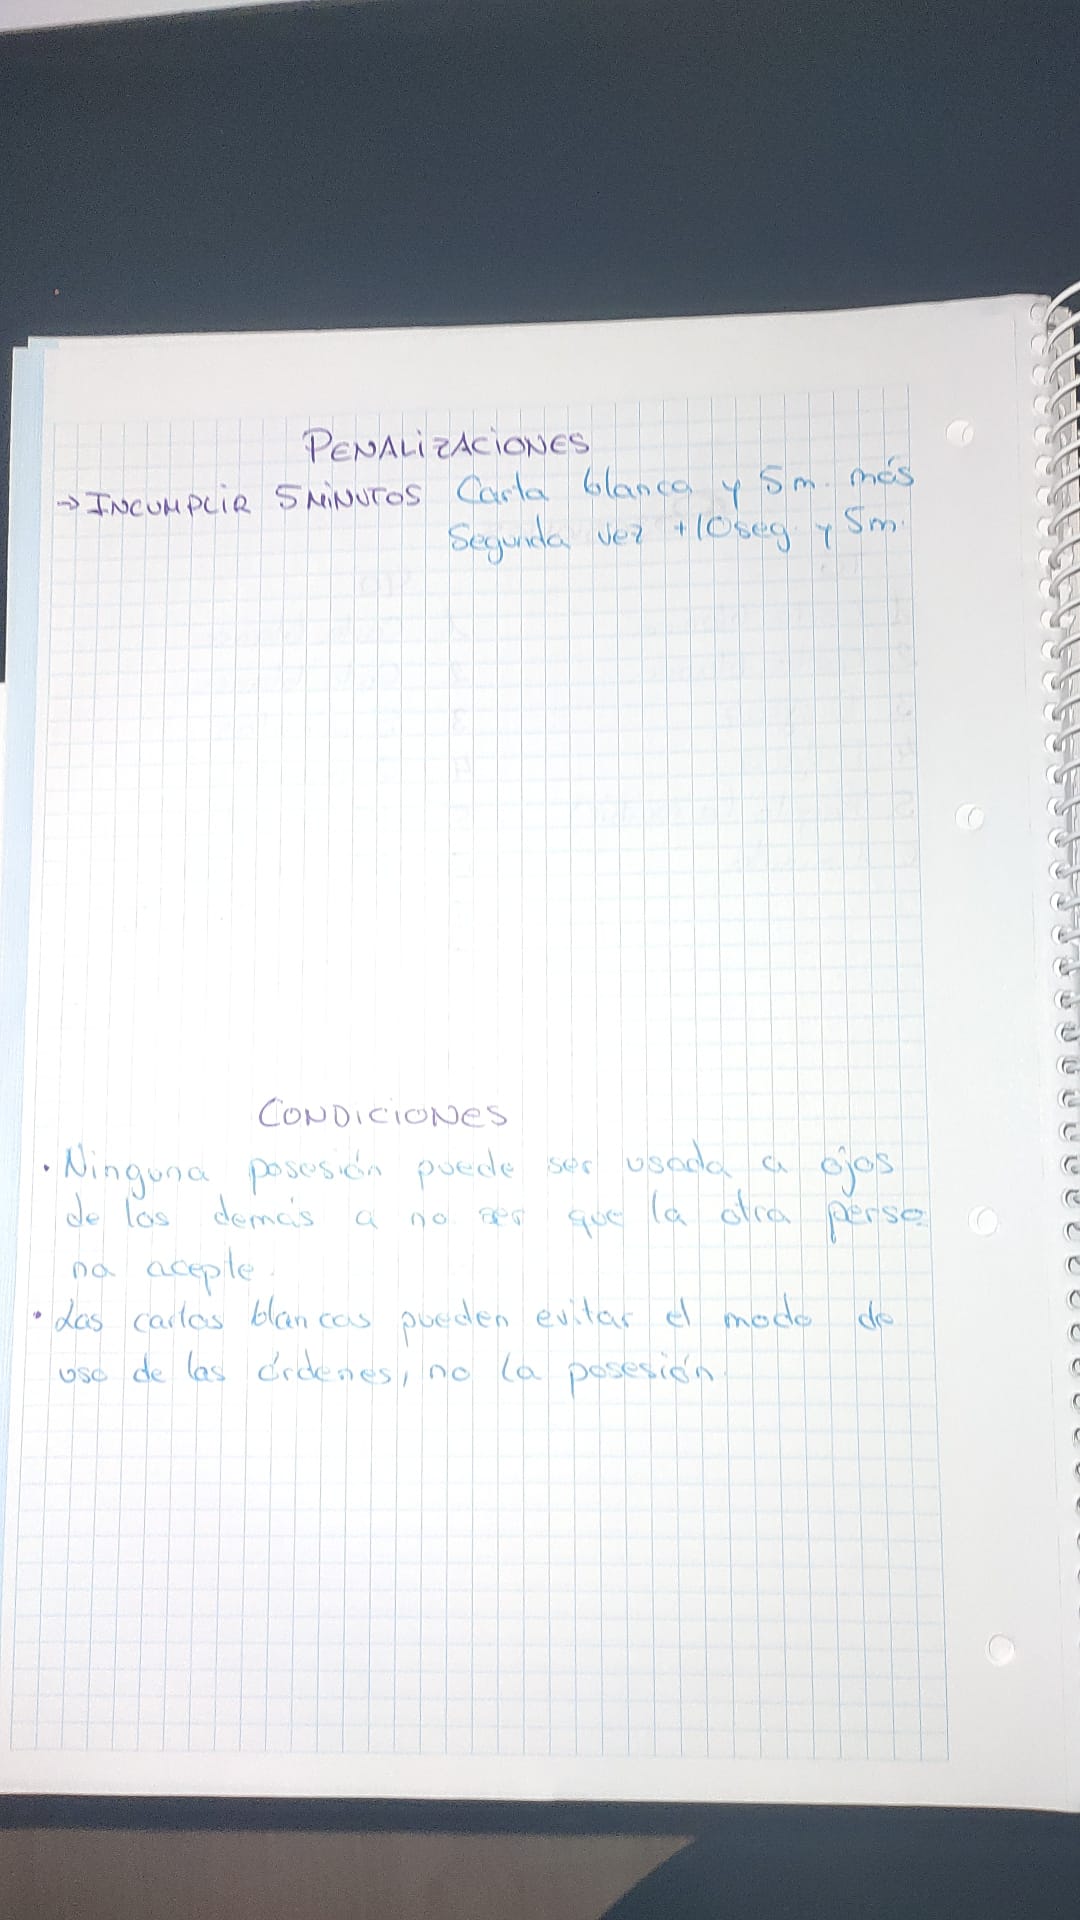 PENALIZACIONES
→ INCUMPLIR 5 MINUTOS Carta blanca y 5 m. más
Segunda vez +10 seg y 5 m.
CONDICIONES
• Ninguna posesión puede ser usada a ojos
de los demás a no ser que la otra perso
na acepte.
• Las cartas blancas pueden evitar el modo de
uso de las órdenes, no la posesión.